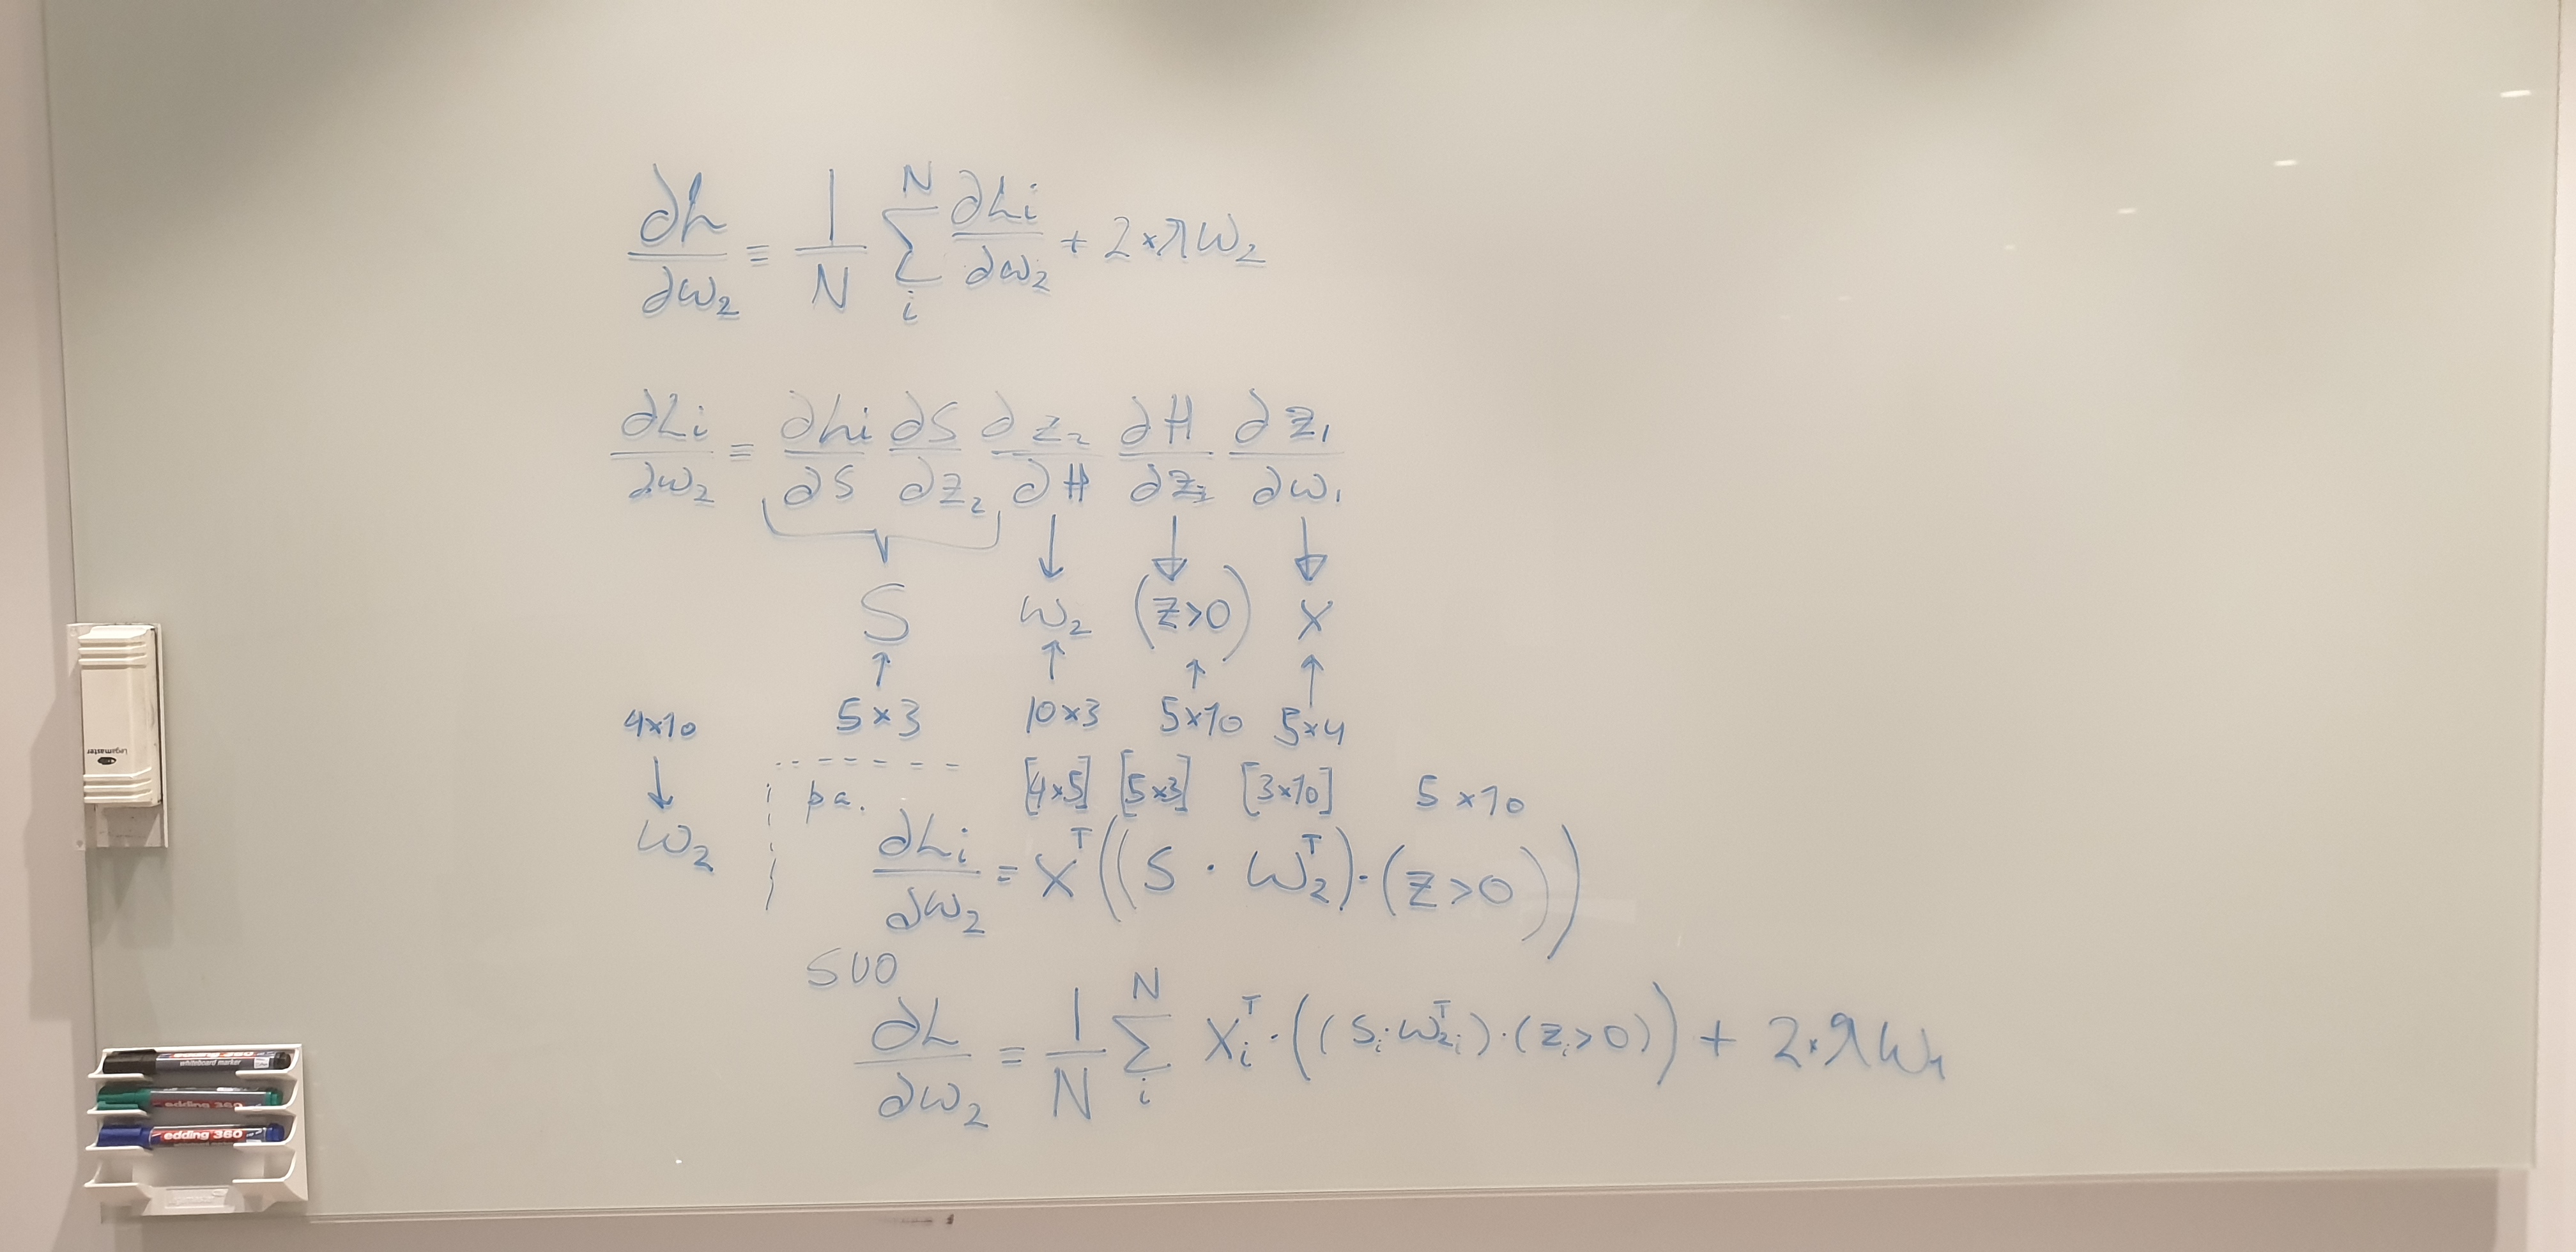 ∂L/∂w₂ = 1/N ∑ᵢᴺ ∂Li/∂w₂ + 2*λw₂
∂Li/∂w₂ = ∂Li/∂S ∂S/∂z₂ ∂z₂/∂H ∂H/∂z₂ ∂z₁/∂w₁
S w₂ (z>0) x
4x10 5x3 10x3 5x10 5x4
pa. [4x5] [5x3] [3x10] 5x10
w₂ ∂Li/∂w₂ = Xᵀ((S · w₂ᵀ)·(z>0))
SUO
∂L/∂w₂ = 1/N ∑ᵢᴺ Xᵢᵀ·((Sᵢ·w₂ᵢᵀ)·(zᵢ>0)) + 2*λw₁
Legamaster
edding 360
whiteboard marker
edding 360
edding 360